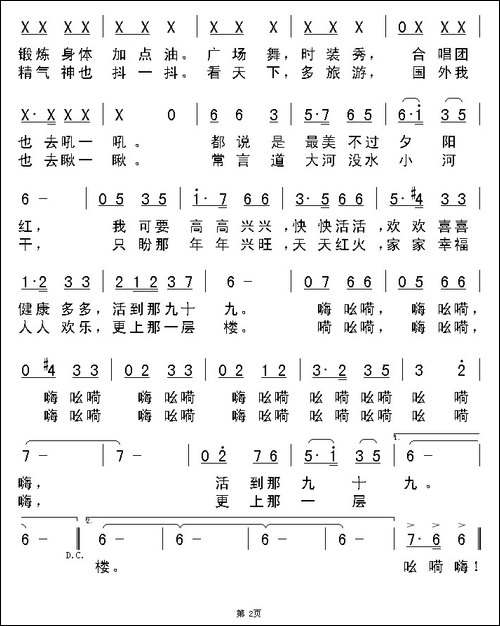 X X X X X X X X X X X 0X X X
锻炼 身体 加 点 油。 广 场 舞, 时 装 秀, 合 唱团
精气 神也 抖 一 抖。 看 天 下, 多 旅 游, 国 外我
X· X X X X 0 6 6 3 5·7 6 5 6·i 3 5
也 去吼 一 吼。 都 说 是 最美 不过 夕 阳
也 去瞅 一 瞅。 常 言 道 大河 没水 小 河
6 - 0 5 3 5 i·7 6 6 3·5 6 6 5·#4 3 3
红, 我 可要 高 高 兴兴, 快 快 活活, 欢 欢 喜喜
干, 只 盼那 年 年 兴旺, 天 天 红火, 家 家 幸福
1·2 3 3 2 1 2 3 7 6 - 0 7 6 6 0 7 6 6
健康 多多, 活到那九十 九。 嗨 吆嗬, 嗨 吆嗬,
人人 欢乐, 更上那一层 楼。 嗬 吆嗬, 嗨 吆嗬,
0 #4 3 3 0 2 3 3 0 2 1 2 3·2 3 5 3 2
嗨 吆嗬 嗨 吆嗬 嗨 吆嗬 吆 嗬 吆嗬 吆 嗬
嗨 吆嗬 嗨 吆嗬 嗨 吆嗬 吆 嗬 吆嗬 吆 嗬
1.
7 - 7 - 0 2 7 6 5·i 3 5 6 -
嗨, 活 到那 九 十 九。
嗨, 更 上那 一 层
2.
6 - 6 - 6 - 6 - 6 - 7·6 6
D.C.
楼。 吆 嗬 嗨!
第 2页